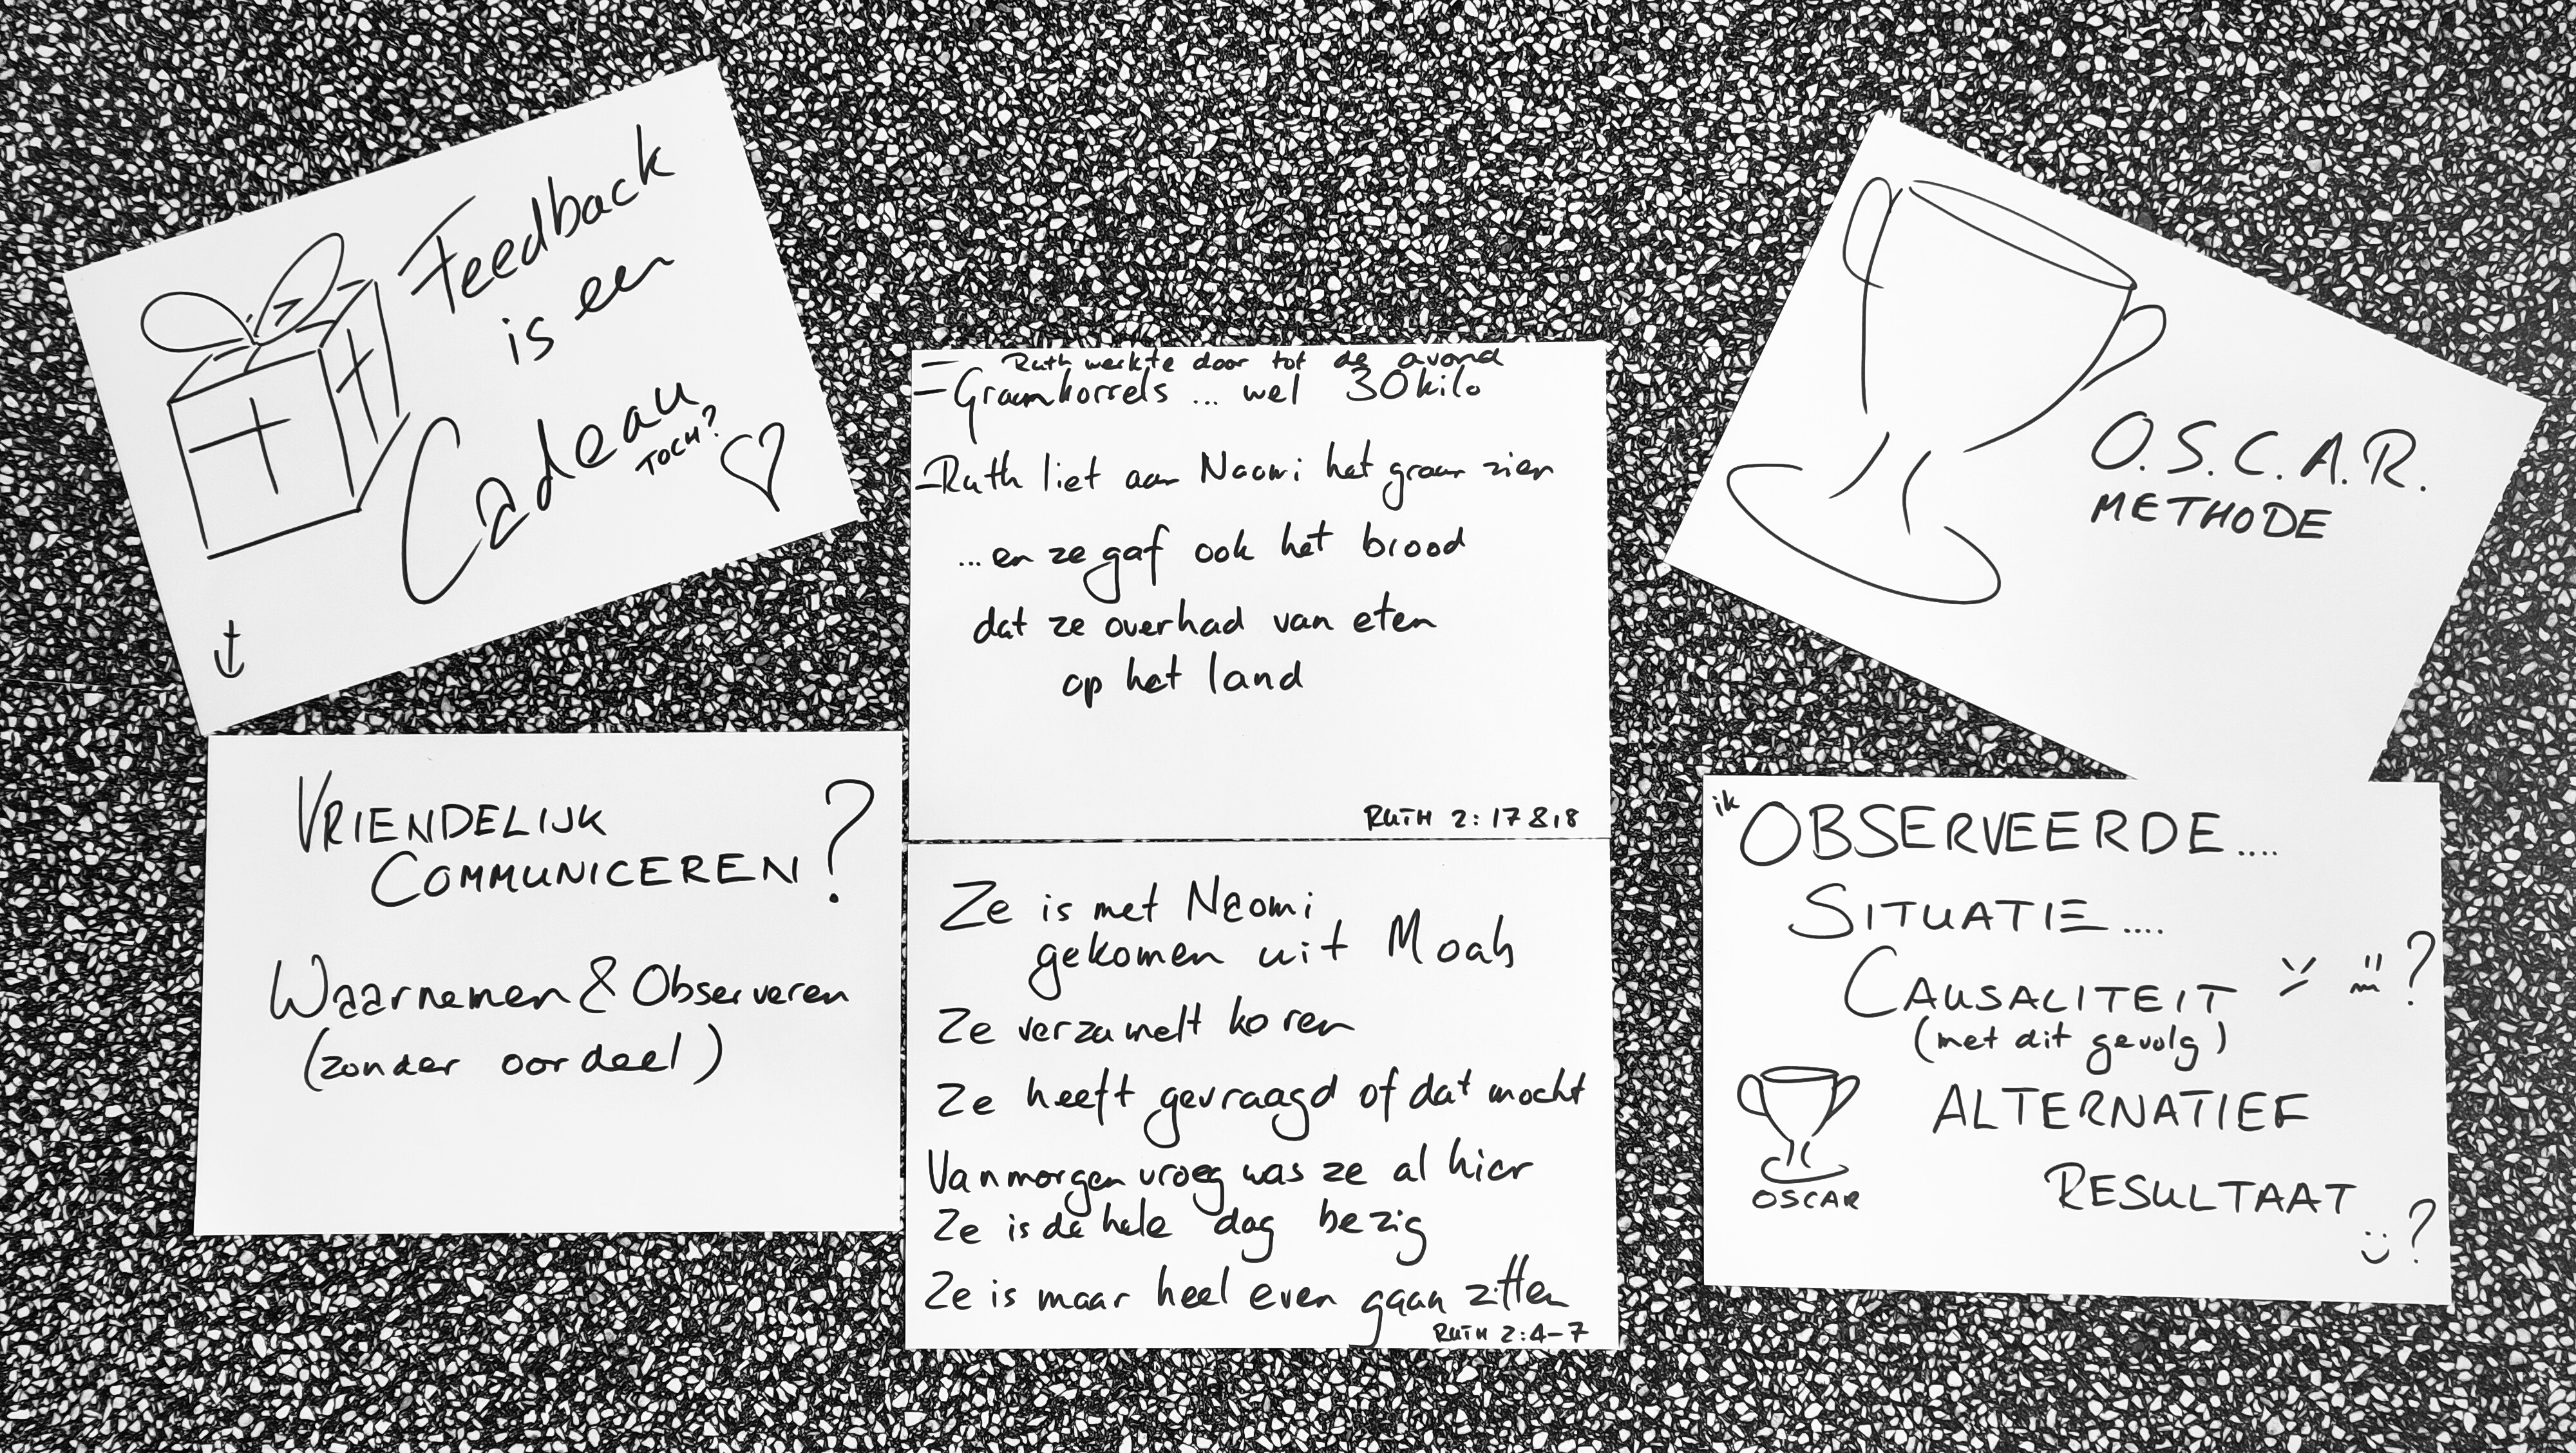 Feedback
is een
Cadeau
TOCH?
VRIENDELIJK
COMMUNICEREN?
Waarnemen & Observeren
(zonder oordeel)
— Ruth werkte door tot de avond
— Graankorrels ... wel 30kilo
— Ruth liet aan Naomi het graan zien
...en ze gaf ook het brood
dat ze overhad van eten
op het land
RUTH 2:17&18
Ze is met Naomi
gekomen uit Moab
Ze verzamelt koren
Ze heeft gevraagd of dat mocht
Vanmorgen vroeg was ze al hier
Ze is de hele dag bezig
Ze is maar heel even gaan zitten
RUTH 2:4-7
O.S.C.A.R.
METHODE
ik OBSERVEERDE....
SITUATIE....
CAUSALITEIT ?
(met dit gevolg)
ALTERNATIEF
RESULTAAT
OSCAR
:) ?